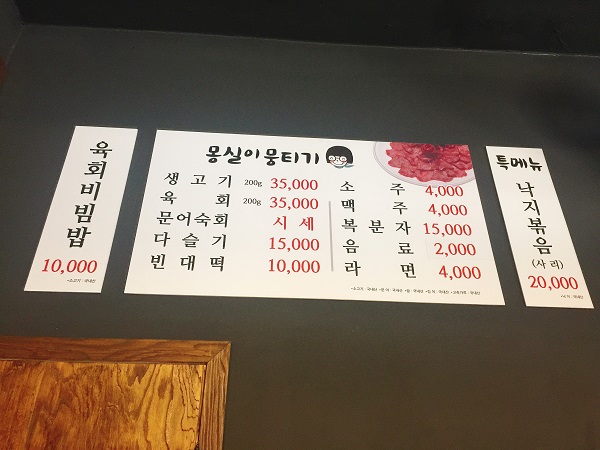 육회비빔밥
10,000
•소고기 : 국내산
몽실이뭉티기
생고기 200g 35,000
육회 200g 35,000
문어숙회 시세
다슬기 15,000
빈대떡 10,000
소주 4,000
맥주 4,000
복분자 15,000
음료 2,000
라면 4,000
특메뉴
낙지볶음
(사리)
20,000